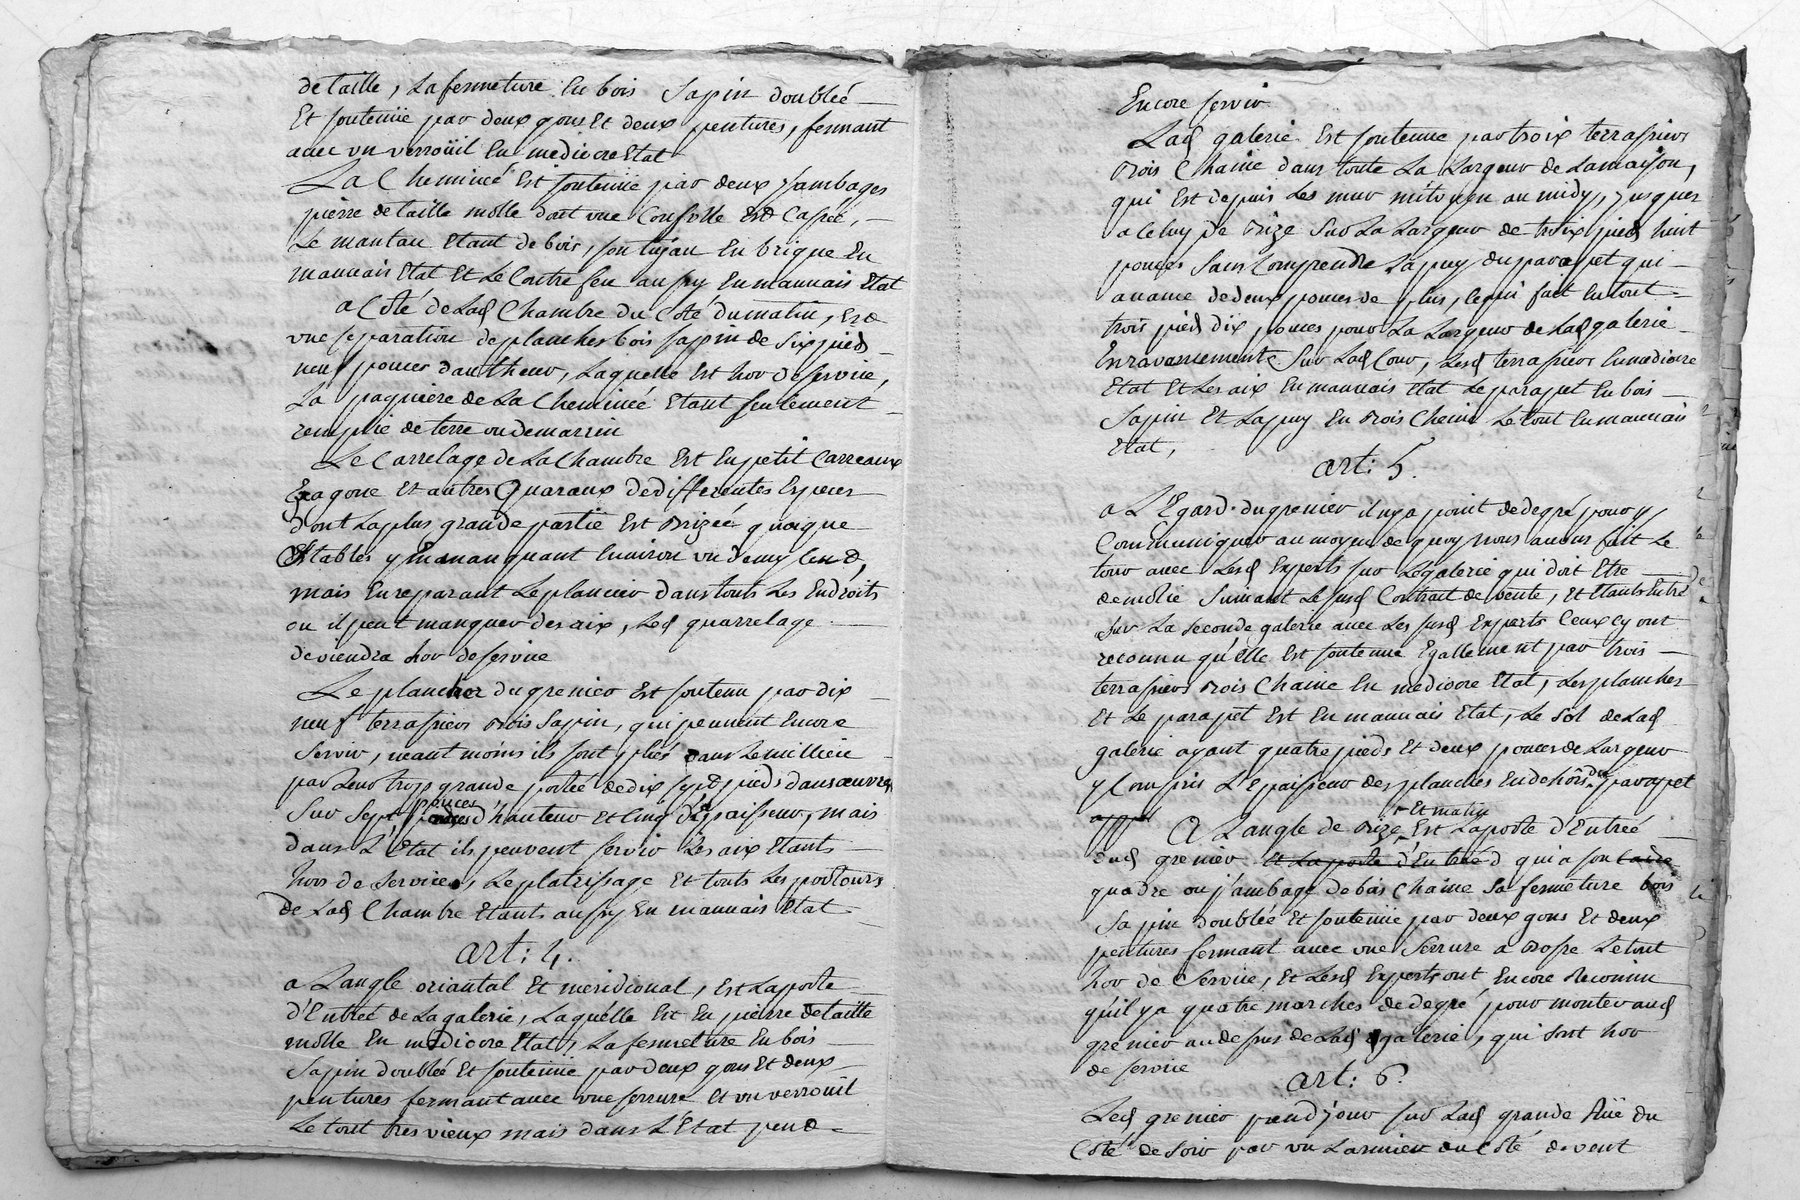 de taille, La fermeture En bois Sapin doublée
Et soutenüe par deux gons Et deux pentures, fermant
avec un verroüil En mediocre Etat
La Cheminée Est soutenüe par deux jambages
pierre de taille molle dont une Consolle Est Cassée,
Le mantau Etant de bois, son tuyau En brique En
mauvais Etat Et Le Contrefeu aussy En mauvais Etat
a Côté de Lad Chambre du Côté du matin, Est
une separation de planches bois sapin de six pieds
neuf pouces d'autheur, Laquelle Est hor de service,
La de La Cheminée Etant seulement
remplie de terre ou de marrin
Le Carrelage de La Chambre Est En petit Carreaux
Exagone Et autres Quaraux de differentes Especes
dont La plus grande partie Est Brizée quoique
Etables y En manquant Environ un demy Cent,
mais En reparant Le plancier dans touts Les Endroits
ou il peut manquer des aix, Led quarrelage
deviendra hor de service
Le plancher du grenier Est soutenu par dix
neuf terrassiers Bois Sapin, qui peuvent Encore
Servir, neant moins ils sont pliés dans Le millieu
par Leur trop grande portée de dix sept pieds dans œuvres
Sur Sept pouces d'hauteur et Cinq d'Epaisseur, mais
dans L'Etat ils peuvent servir Les aix Etants
hors de Service, Le platrissage Et touts Les pourtours
de Lad Chambre Etants aussy En mauvais Etat
art: 4.
a Langle oriantal Et meridional, Est La porte
d'Entrée de La galerie, Laquélle Est En pierre de taille
molle En mediocre Etat, La fermeture En bois
Sapin doublée Et soutenüe par deux gons Et deux
pentures fermant avec une serrure Et un verroüil
Le tout tres vieux mais dans L'Etat peut
Encore servir
Lad galerie Est soutenue par troix terrassiers
Bois Chaine dans toute La Largeur de La maison,
qui Est depuis Les mur mitoyen au midy, jusques
a celuy de Bize Sur La Largeur de troix pieds huit
pouces Sans Comprendre Lapuy du parapet qui
avance de deux pouces de plus, ce qui fait En tout
trois pieds dix pouces pour La Largeur de Lad galerie
En ravancement Sur Lad Cour, Lesd terrassiers En mediocre
Etat Et Les aix En mauvais Etat Le parapet En bois
Sapin Et Lapuy En Bois Chene Le tout En mauvais
Etat,
art: 5.
a L'Egard du grenier il ny a point de degré pour y
Communiquer au moyen de quoy nous avons fait Le
tour avec Lesd Experts sur Le galerie qui doit Etre
demolie Suivant Le susd Contrat de vente, Et Etants Entré
sur La seconde galerie avec Les susd Experts Ceux cy ont
reconnu qu'Elle Est soutenue Egallement par trois
terrassiers Bois Chaine En mediocre Etat, Les planches
Et Le parapet Est En mauvais Etat, Le Sol de Lad
galerie ayant quatre pieds Et deux pouces de Largeur
y Compris L'Epaisseur des planches En dehors du parapet
Et matin
A Langle de Bize Est La porte d'Entrée
dud grenier et La porte d'Entrée qui a son Cadre
quadre ou j'ambage de bois Chaine Sa fermeture bois
Sapin doublée Et soutenüe par deux gons Et deux
pentures fermant avec une Serrure a Bosse Le tout
hor de Service, Et Lesd Experts ont Encore Reconnu
qu'il y a quatre marches de degré pour monter aud
grenier au dessus de Lad galerie, qui sont hor
de service
art: 6.
Led grenier prend jour sur Lad grande Rüe du
Côté de Soir par un Larmier du Côté de vent